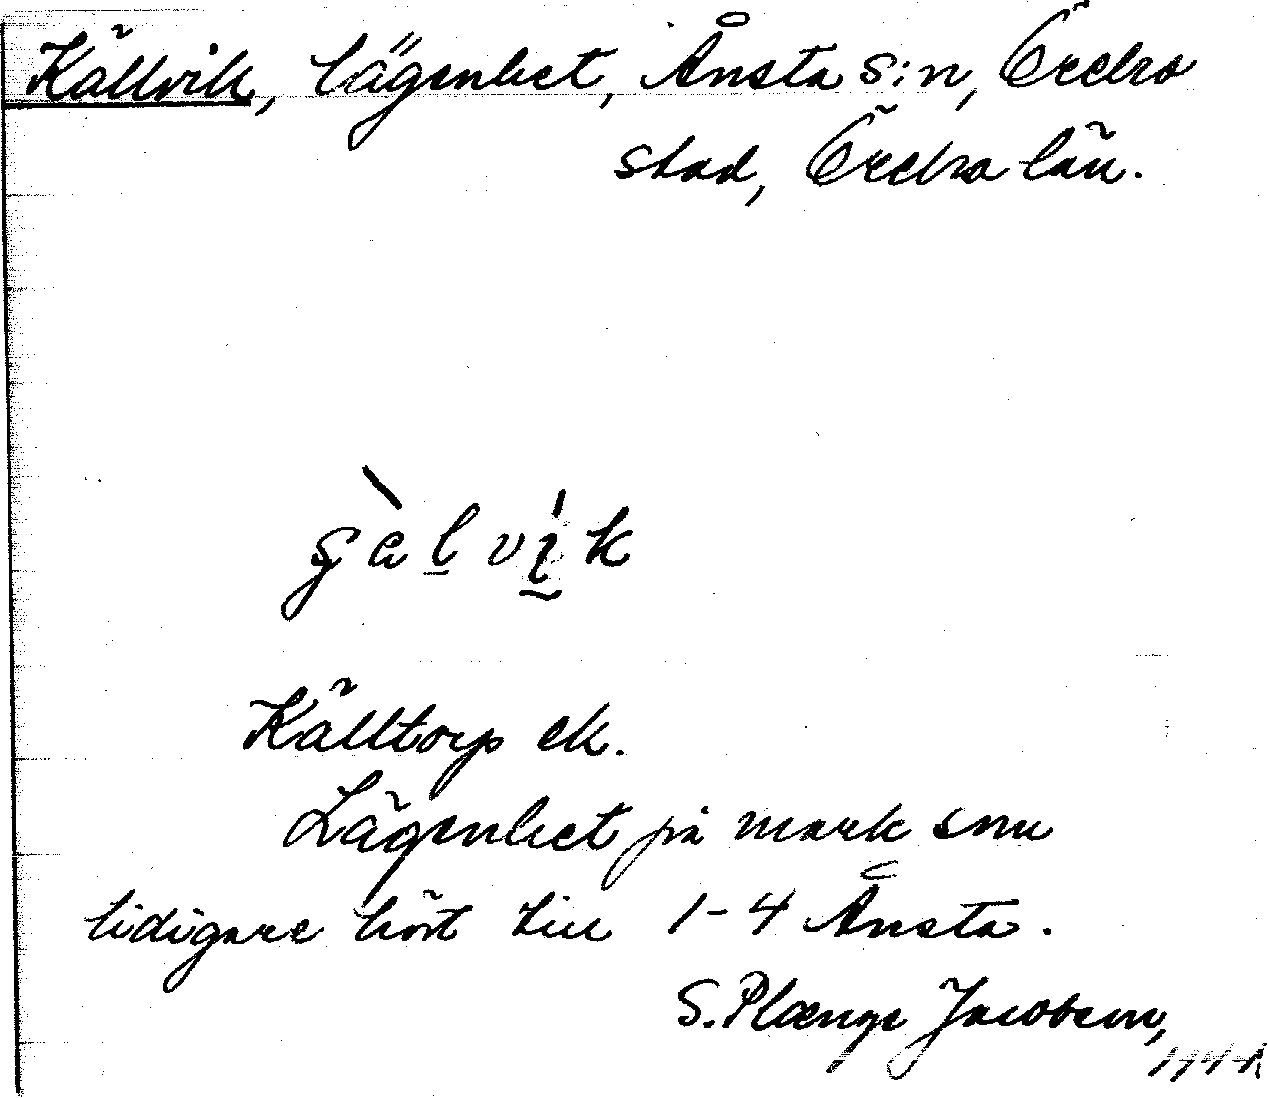 Källvik, lägenhet, Ånsta s:n, Örebro
stad, Örebro län.
Källtorp ek.
Lägenhet på mark som
tidigare hört till 1-4 Ånsta.
S. Plænge Jacobson,